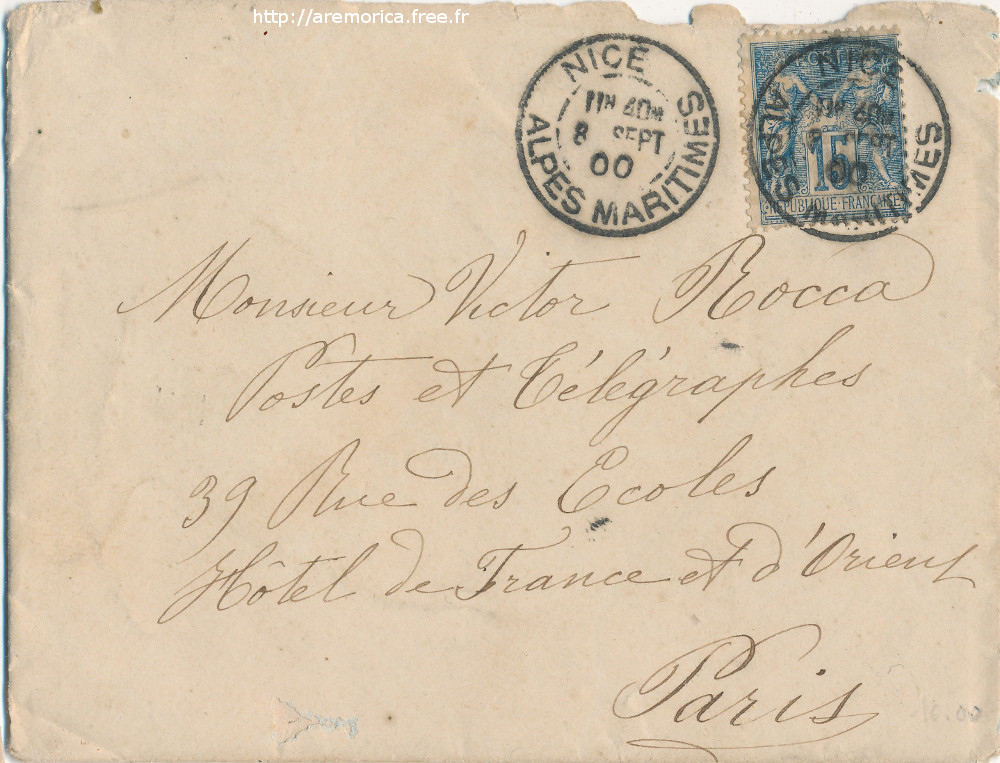 http://aremorica.free.fr
NICE
11H 40M
8 SEPT
00
ALPES MARITIMES
POSTE
NICE
11H 40M
8 SEPT
00
ALPES MARITIMES
15
REPUBLIQUE FRANÇAISE
Monsieur Victor Rocca
Postes et Télégraphes
39 Rue des Ecoles
Hôtel de France et d'Orient
Paris